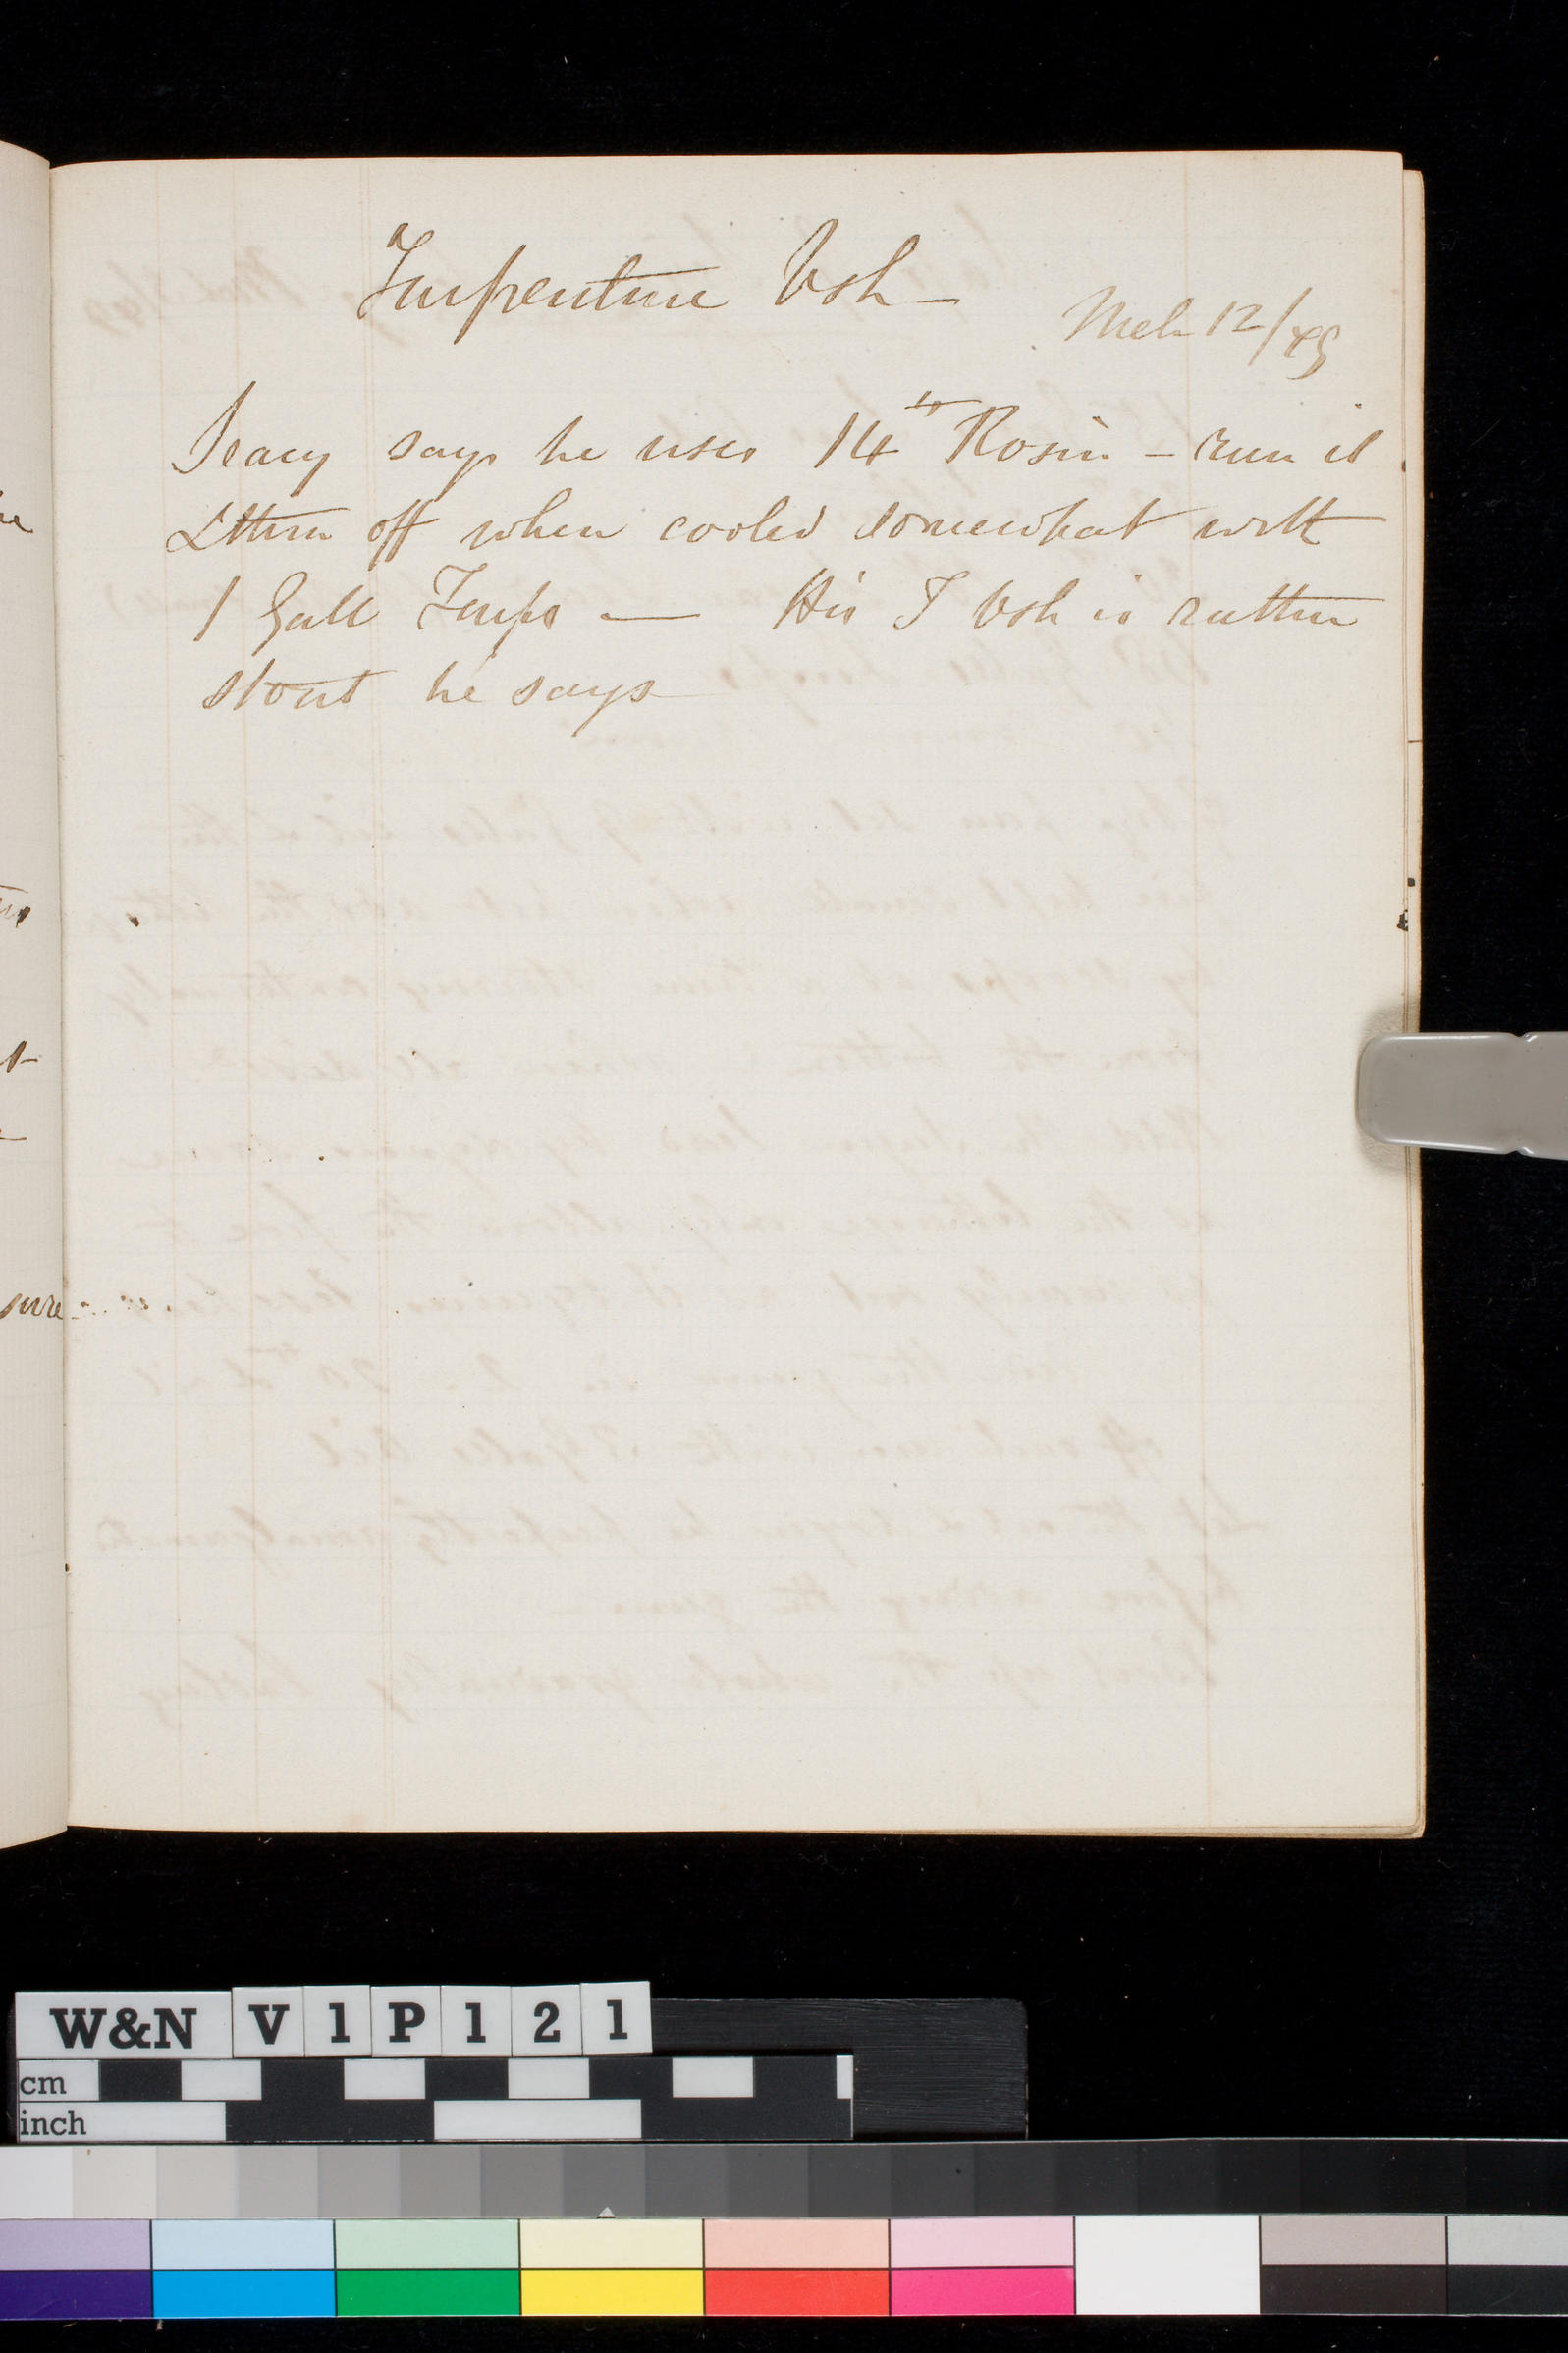 Turpentine Vsh —
Mch 12/49
says he uses 14 lb Rosin – run it
& thin off when cooled somewhat with
1 Gall Turps — His T Vsh is rather
stout he says
sure
W&N V1P121
cm
inch